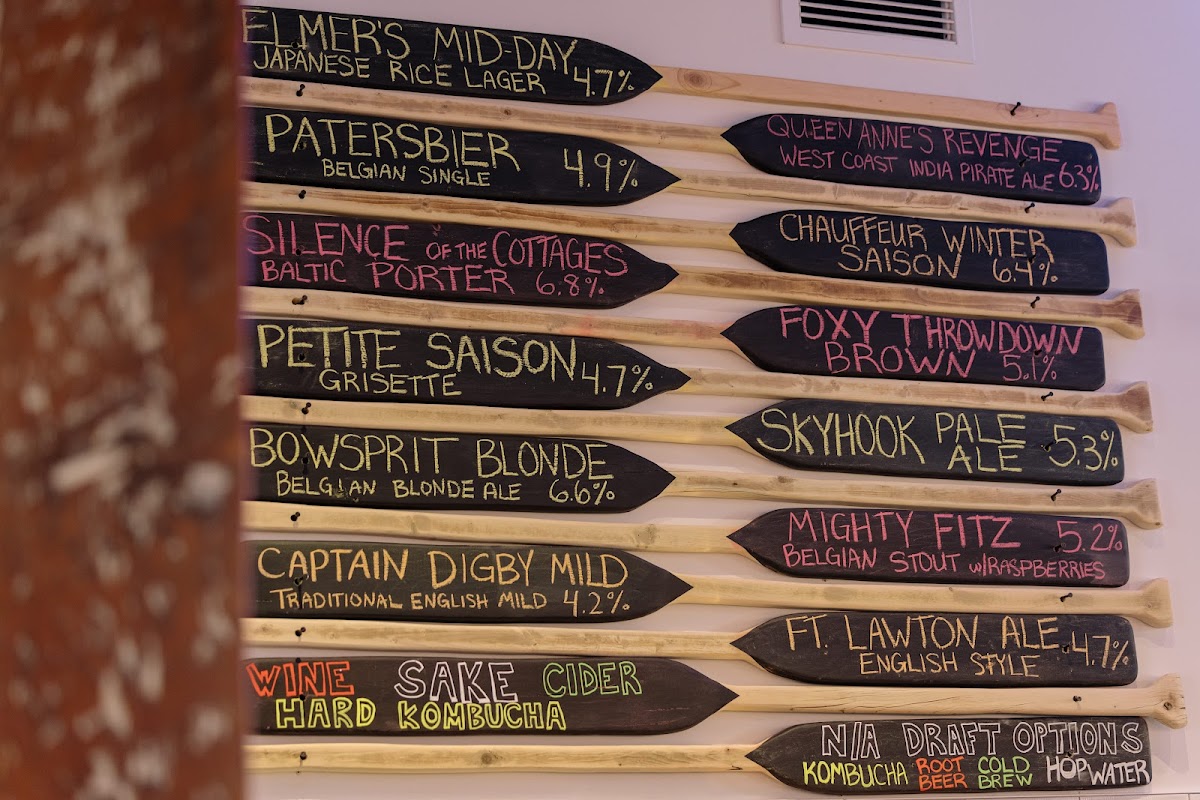 ELMER'S MID-DAY
JAPANESE RICE LAGER 4.7%
PATERSBIER
BELGIAN SINGLE 4.9%
SILENCE OF THE COTTAGES
BALTIC PORTER 6.8%
PETITE SAISON
GRISETTE 4.7%
BOWSPRIT BLONDE
BELGIAN BLONDE ALE 6.6%
CAPTAIN DIGBY MILD
TRADITIONAL ENGLISH MILD 4.2%
WINE SAKE CIDER
HARD KOMBUCHA
QUEEN ANNE'S REVENGE
WEST COAST INDIA PIRATE ALE 6.3%
CHAUFFEUR WINTER
SAISON 6.4%
FOXY THROWDOWN
BROWN 5.1%
SKYHOOK PALE
ALE 5.3%
MIGHTY FITZ 5.2%
BELGIAN STOUT W/RASPBERRIES
FT. LAWTON ALE
ENGLISH STYLE 4.7%
N/A DRAFT OPTIONS
KOMBUCHA ROOT BEER COLD BREW HOP WATER